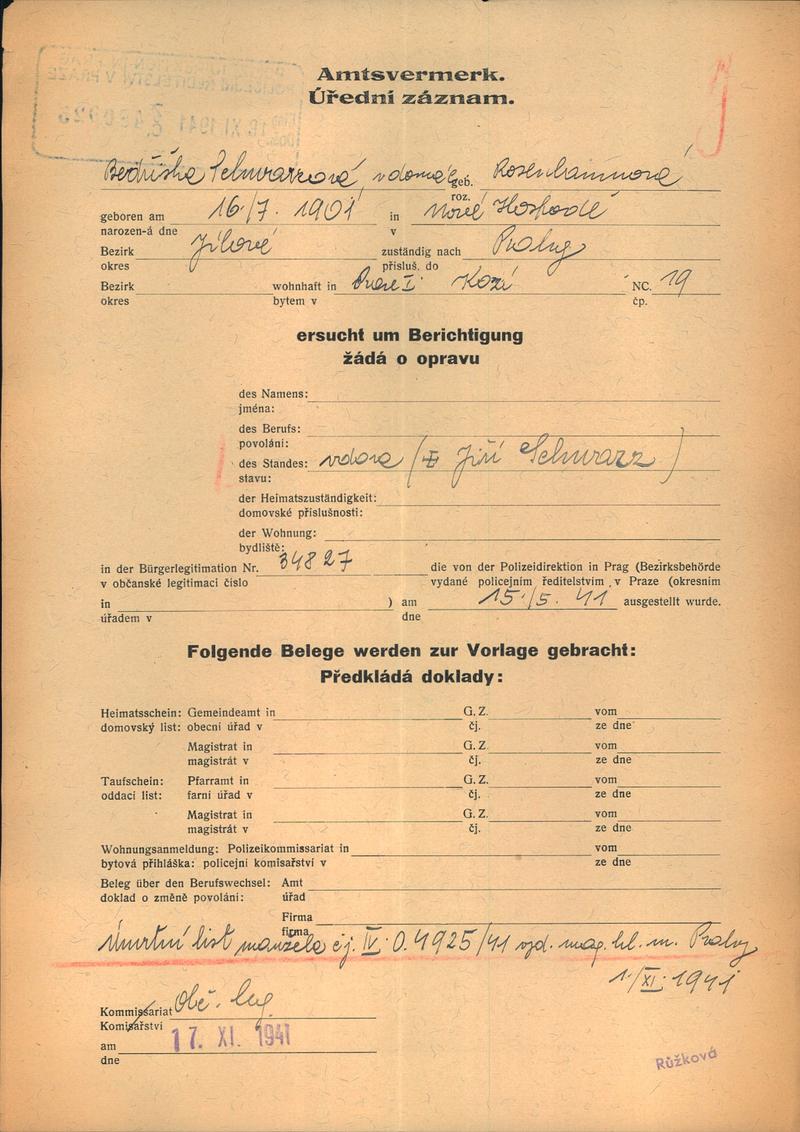 Amtsvermerk.
Úřední záznam.
Bedřiška Schwarzová, vdova geb. Rosenbaumová
roz.
geboren am 16./7. 1901 in Nové Hospodě
narozen-á dne v
Bezirk Jílové zuständig nach Prahy
okres přísluš. do
Bezirk wohnhaft in Praze I. Kozí NC. 19
okres bytem v čp.
ersucht um Berichtigung
žádá o opravu
des Namens:
jména:
des Berufs:
povolání:
des Standes: vdova ( Jiří Schwarz )
stavu:
der Heimatszuständigkeit:
domovské příslušnosti:
der Wohnung:
bydliště:
in der Bürgerlegitimation Nr. 34827 die von der Polizeidirektion in Prag (Bezirksbehörde
v občanské legitimaci číslo vydané policejním ředitelstvím v Praze (okresním
in ) am 15./5. 41 ausgestellt wurde.
úřadem v dne
Folgende Belege werden zur Vorlage gebracht:
Předkládá doklady:
Heimatsschein: Gemeindeamt in G. Z. vom
domovský list: obecní úřad v čj. ze dne
Magistrat in G. Z. vom
magistrát v čj. ze dne
Taufschein: Pfarramt in G. Z. vom
oddací list: farní úřad v čj. ze dne
Magistrat in G. Z. vom
magistrát v čj. ze dne
Wohnungsanmeldung: Polizeikommissariat in vom
bytová přihláška: policejní komisařství v ze dne
Beleg über den Berufswechsel: Amt
doklad o změně povolání: úřad
Firma
firma
Úmrtní list manžela čj. IV. 0.4925/41 vyd. mag. hl. m. Prahy
1./XI. 1941
Kommissariat Obč. leg.
Komisařství
am 17. XI. 1941
dne
Růžková